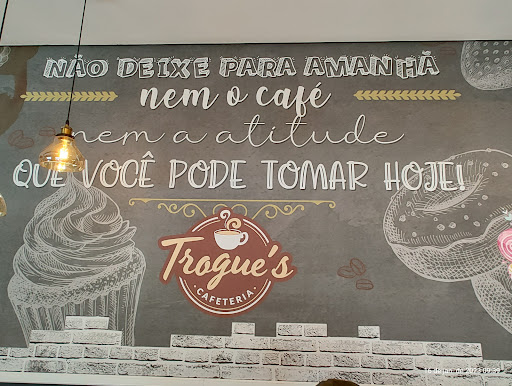 NÃO DEIXE PARA AMANHÃ
nem o café
nem a atitude
QUE VOCÊ PODE TOMAR HOJE!
Trogue's
CAFETERIA